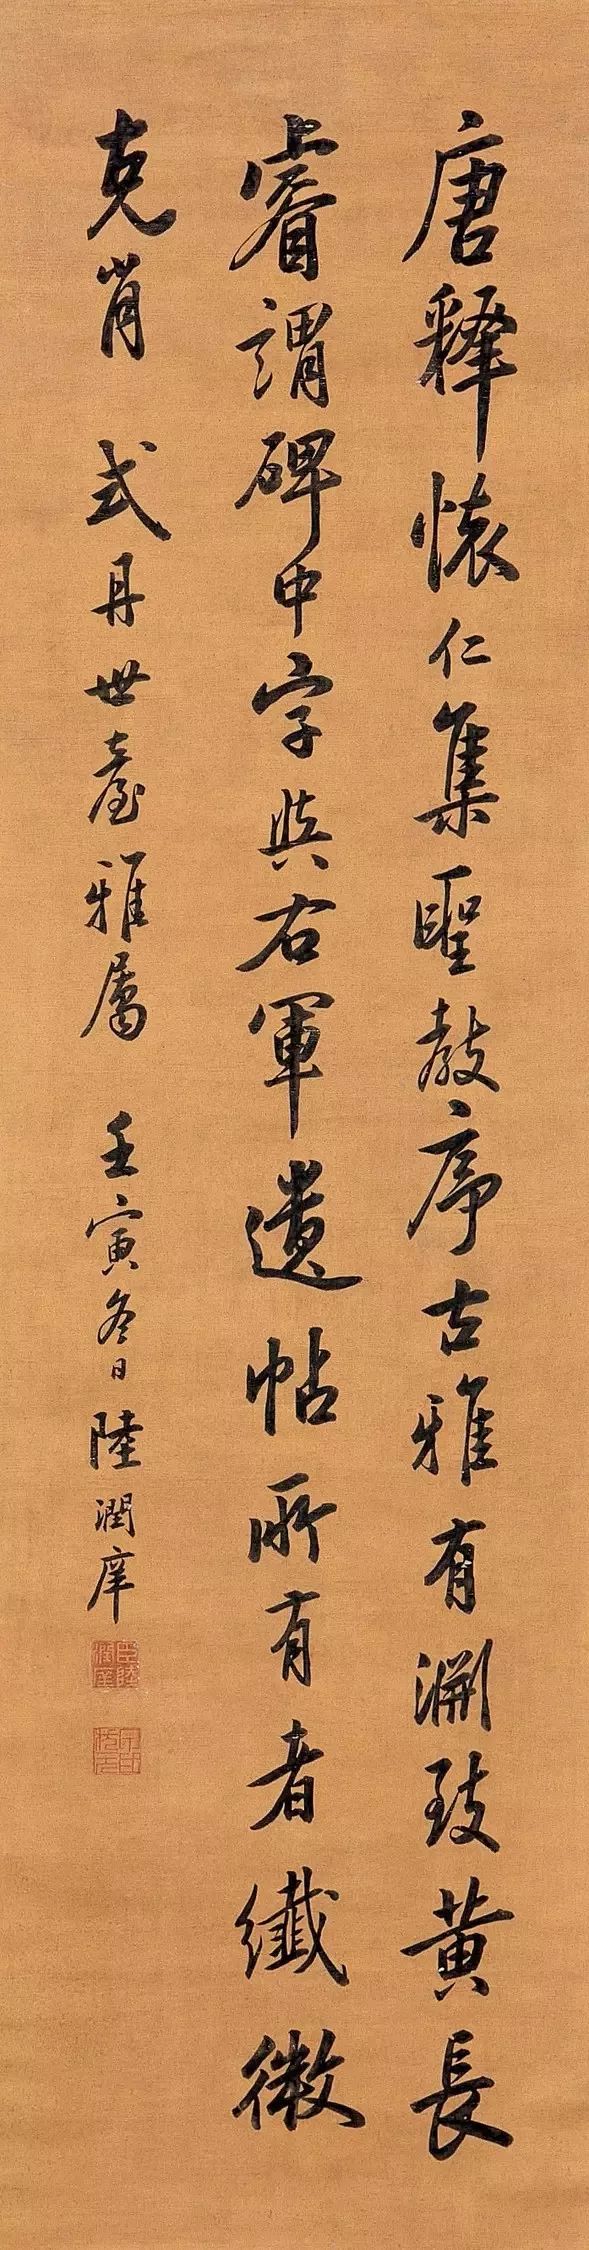 唐釋懷仁集聖教序古雅有淵致黃長
睿謂碑中字與右軍遺帖所有者纖微
克肖 式丹世臺雅屬 壬寅冬日陸潤庠
臣陸潤庠